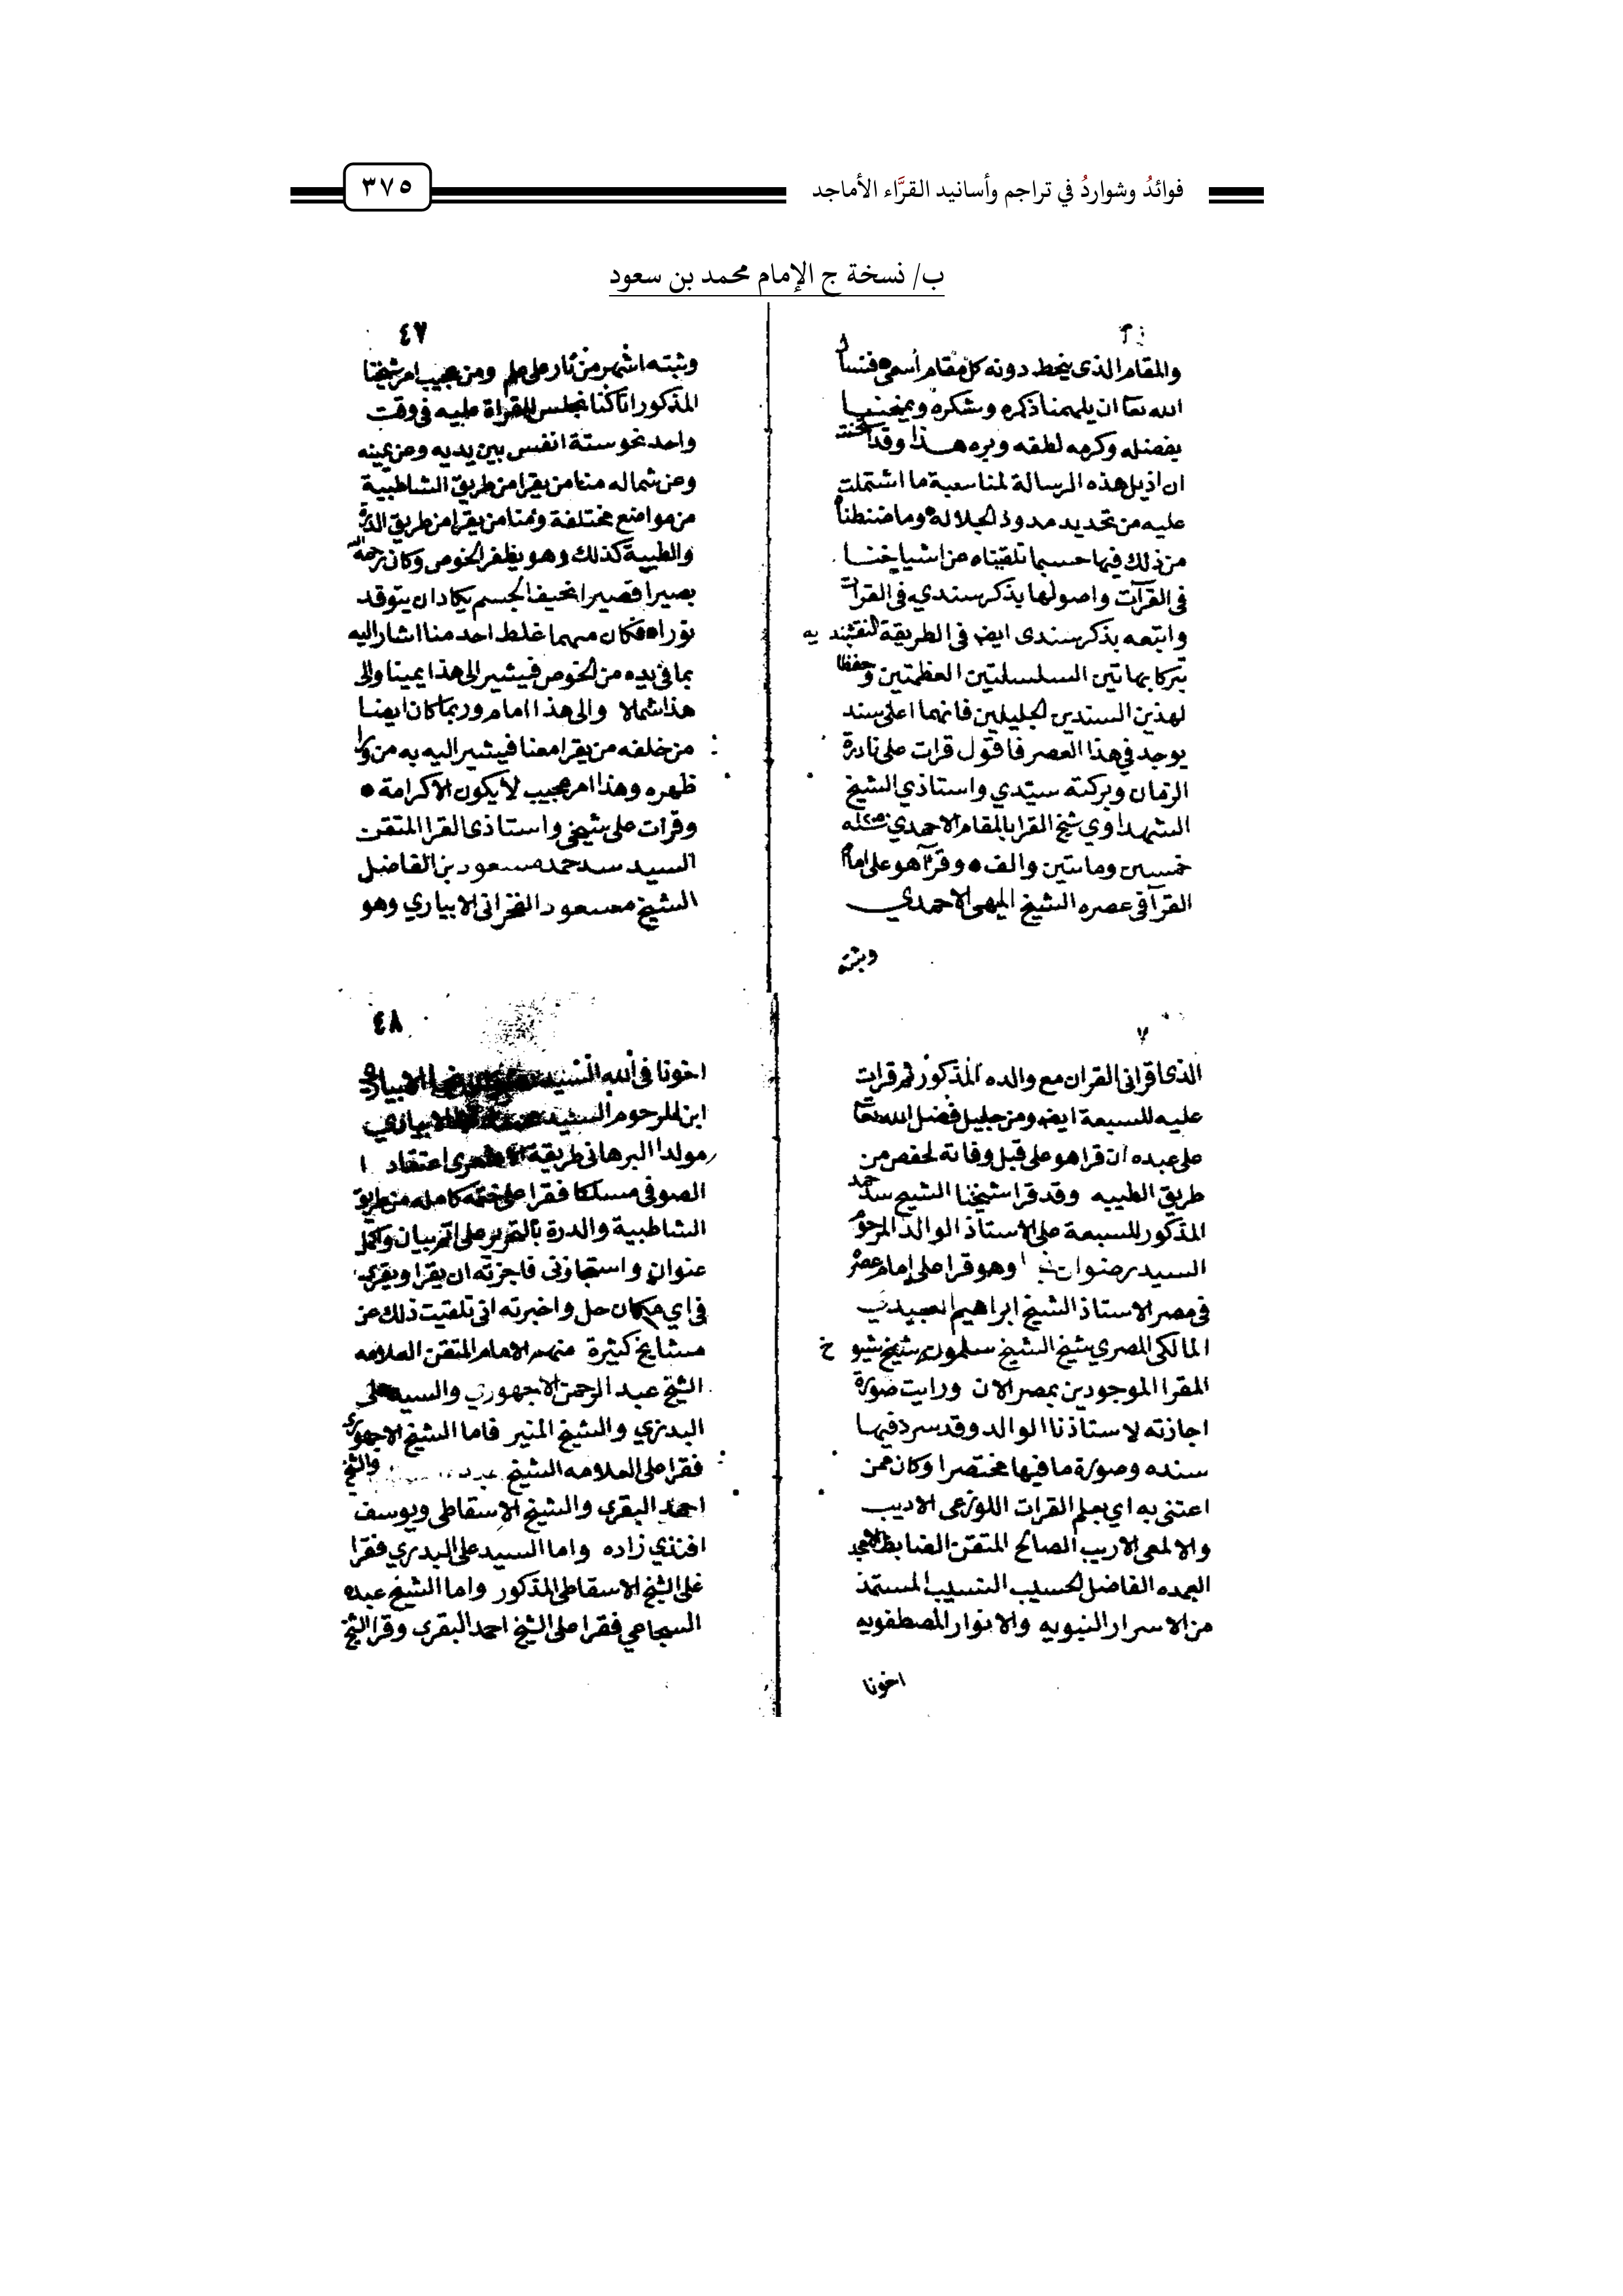 فوائدُ وشواردُ في تراجم وأسانيد القرَّاء الأماجد
٣٧٥
ب/ نسخة ج الإمام محمد بن سعود
والمقام الذى ينحط دونه كل مقام أسمى فنسأ
الله تعا ان يلهمنا ذكره وشكره ويمنحنا
بفضله وكرمه لطفه وبره هذا وقد
ان اذيل هذه الرسالة لمناسبة ما اشتملت
عليه من تحديد مدود الجلاله وما ضبطناه
من ذلك فيها حسبما تلقيناه عن اشياخنا
فى القرآت واصولها بذكر سندي فى القرات
واتبعه بذكر سندى ايض فى الطريقة النقشبنديه
تبركا بهاتين السلسلتين العظمتين وحفظا
لهذين السندين الجليلين فانهما اعلى سند
يوجد في هذا العصر فاقول قرات على نادرة
الزمان وبركته سيّدي واستاذي الشيخ
الشهداوي شيخ القرا بالمقام الاحمدي سنة
خمسين وماتتين والف وقرأ هو على امام
القرآ فى عصره الشيخ الميهى الاحمدي
وثبته
٤٧
وثبته اشهر من نار على علم ومن عجيب امر شيخنا
المذكور انا كنا نجلس للقراة عليه فى وقت
واحد نحو ستة انفس بين يديه وعن يمينه
وعن شماله منا من يقرا من طريق الشاطبية
من مواضع مختلفة ومنا من يقرا من طريق الدرة
والطيبة كذلك وهو يظفر الخوص وكان رحمه الله
بصيرا قصيرا نحيف الجسم يكاد ان يتوقد
نورا فكان مهما غلط احد منا اشار اليه
بما فى يده من الخوص فيشير الى هذا يمينا والى
هذا شملا والى هذا امام وربما كان ايضا
من خلفه من يقرا معنا فيشير اليه به من ورا
ظهره وهذا امر عجيب لا يكون الا كرامة
وقرات على شيخي واستاذى القرا المتقن
السيد سد حمد مسعود بن الفاضل
الشيخ مسعود الابياري وهو
٧
الذى اقرانى القران مع والده المذكور ثم قرات
عليه للسبعة ايض ومن جليل فضل الله تعا
على عبده ان قرا هو على قبل وفاته لحفص من
طريق الطيبه وقد قرا شيخنا الشيخ سد حمد
المذكور للسبعة على الاستاذ الوالد المرحوم
السيد رضوان وهو قرا على إمام عصره
فى مصر الاستاذ الشيخ ابراهيم العبيدي
المالكى المصري شيخ الشيخ سلمونه شيخ شيوخ
المقرا الموجودين بمصر الان ورايت صورة
اجازته لاستاذنا الوالد وقد سرد فيها
سنده وصورة ما فيها مختصرا وكان ممن
اعتنى به اي بعلم القرات اللوزعى الاديب
والالمعى الاريب الصالح المتقن الضابط
العمده الفاضل الحسيب النسيب المستمد
من الاسرار النبويه والانوار المصطفويه
اخونا
٤٨
اخونا فى الله السيد
ابن المرحوم السيد الابياري
مولدا البرهانى طريقة اعتقادا
الصوفى مسلكا فقرا على ختمه كامله من طريق
الشاطبية والدرة بالتحرير على اتم بيان واكمل
عنوان واستجازنى فاجزته ان يقرا ويقري
فى اي مكان حل واخبرته انى تلقيت ذلك عن
مشايخ كثيرة منهم الامام المتقن العلامه
الشيخ عبد الرحمن الاجهوري والسيد على
البدري والشيخ المنير فاما الشيخ الاجهوري
فقرا على العلامه الشيخ والشيخ
احمد البقري والشيخ الاسقاطى ويوسف
افندي زاده واما السيد على البدري فقرا
على الشيخ الاسقاطى المذكور واما الشيخ عبده
السجاعي فقرا على الشيخ احمد البقرى وقرا الشيخ